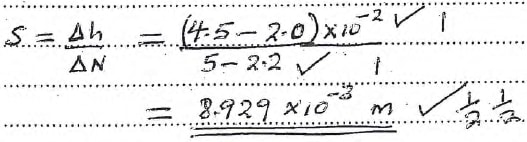 S = Δh/ΔN = (4.5 – 2.0) × 10⁻² / 5 – 2.2 ✓ 1 ✓ 1
= 8.929 × 10⁻³ m ✓ ½ ½